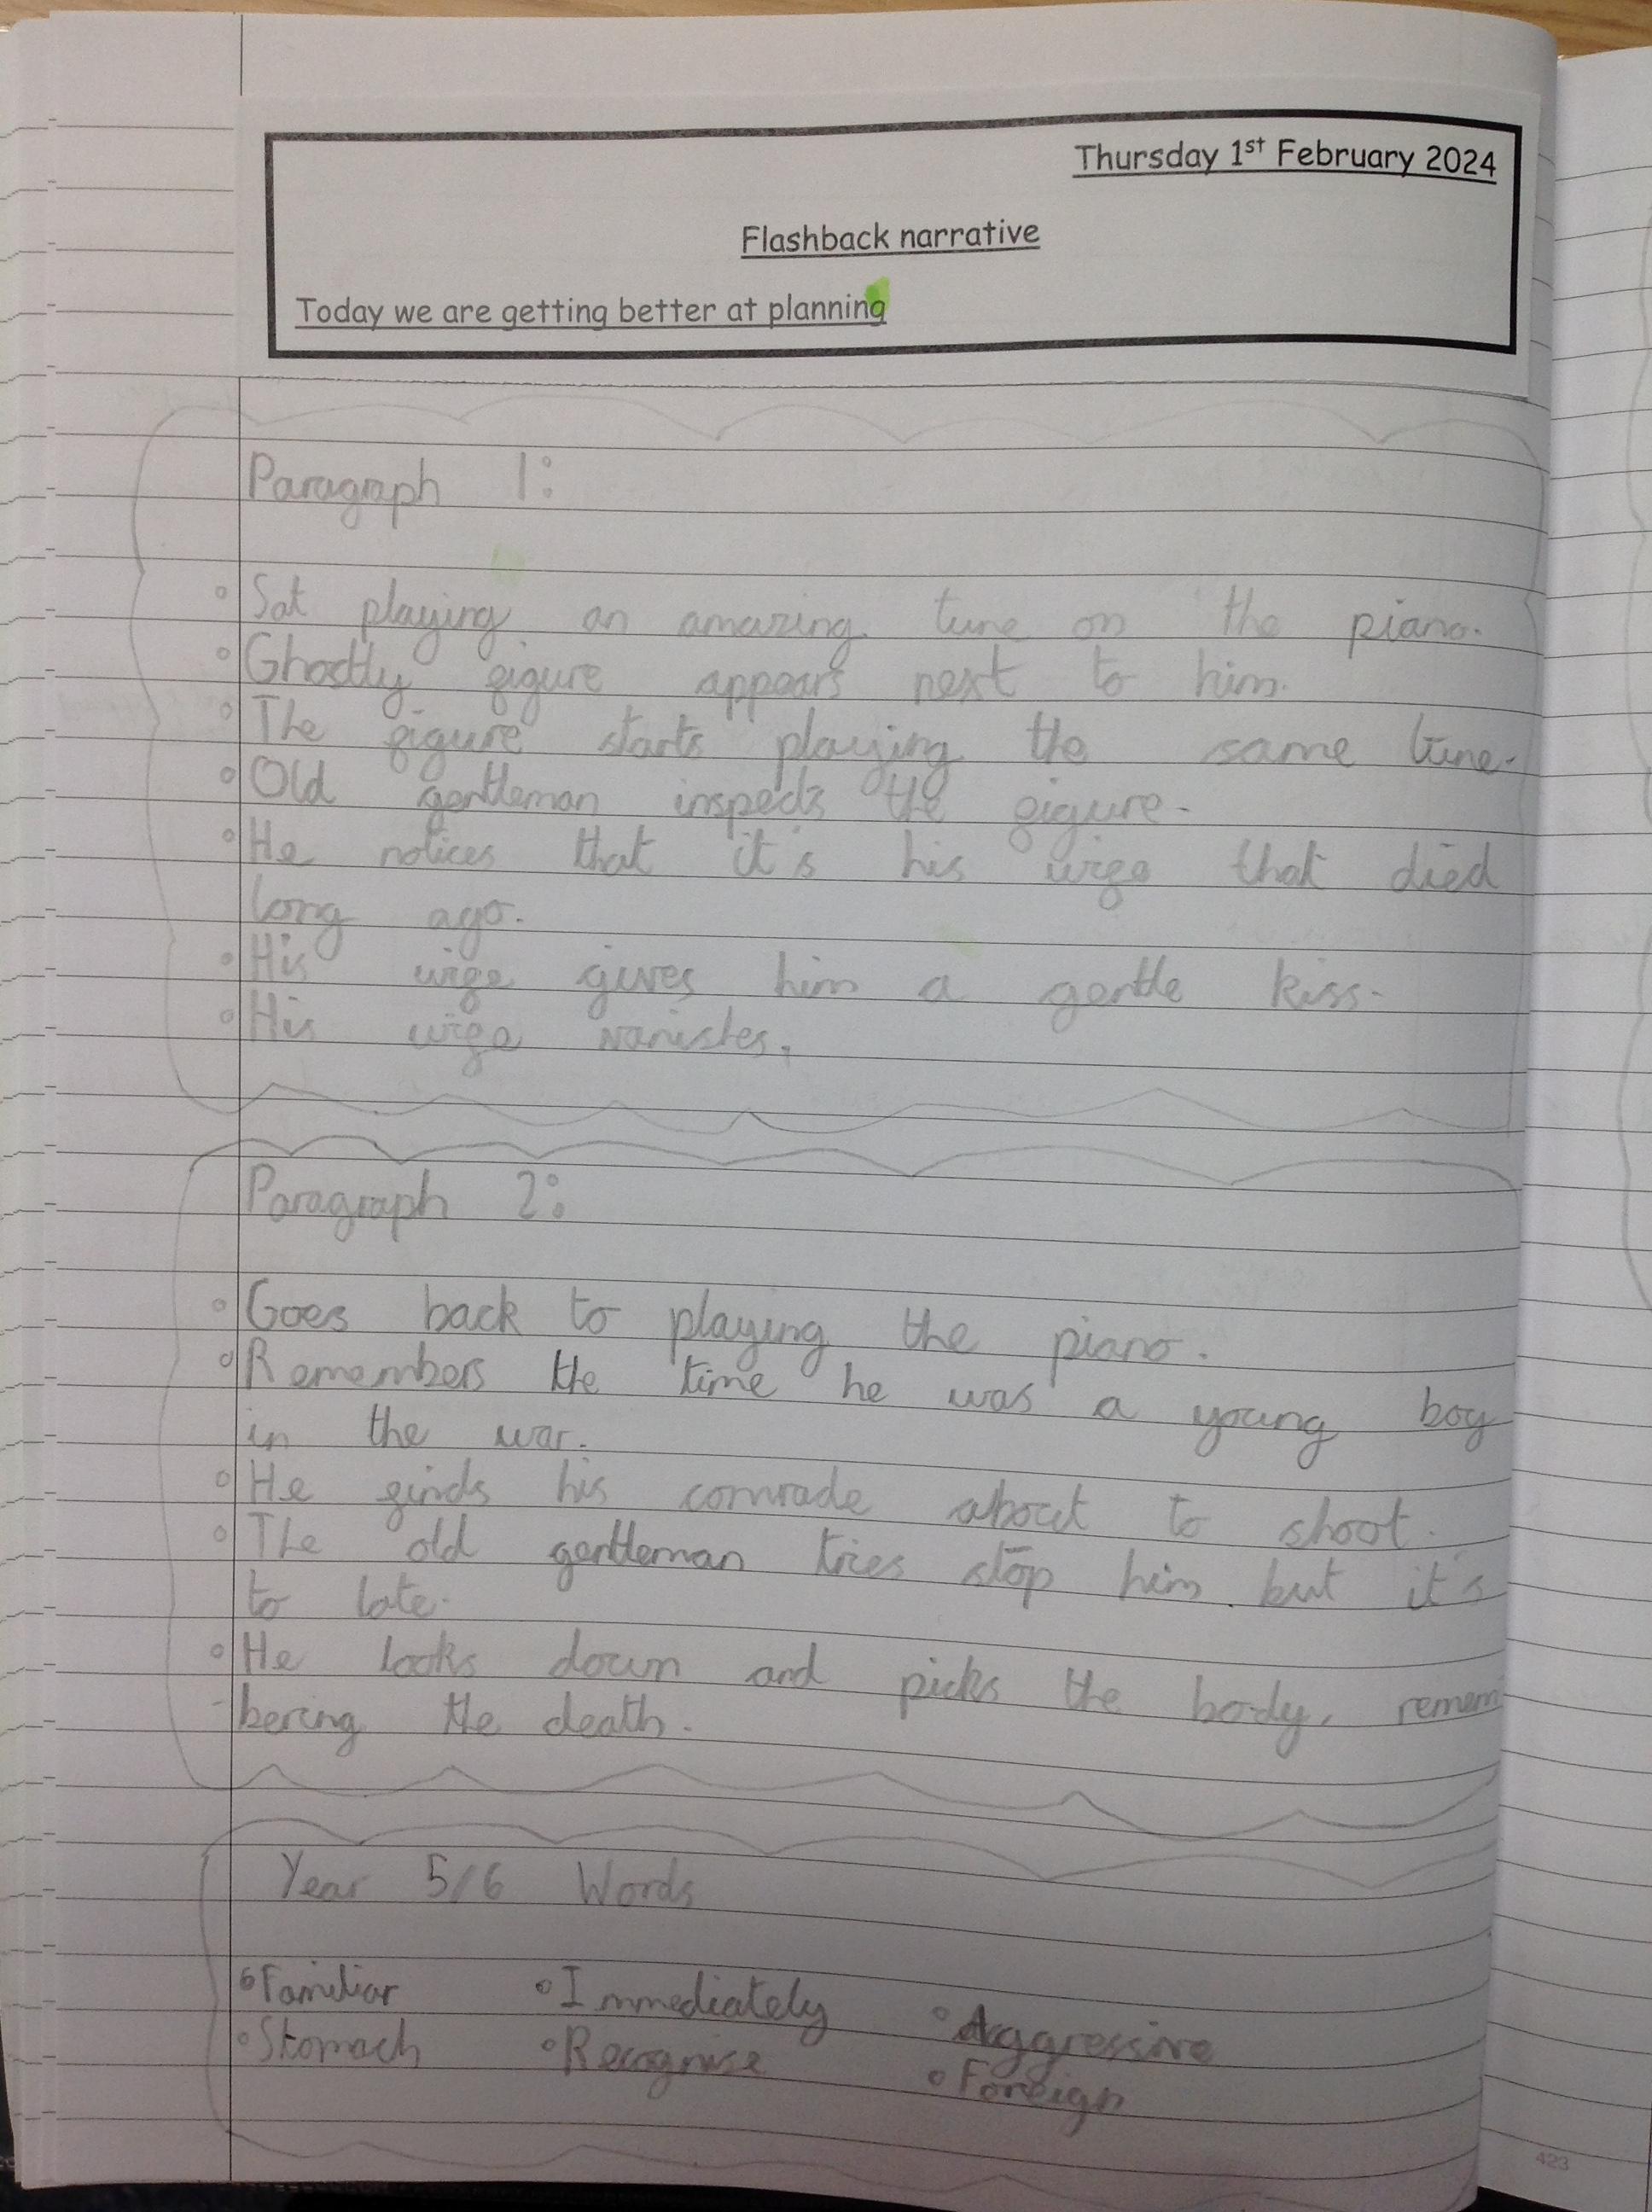 Thursday 1st February 2024
Flashback narrative
Today we are getting better at planning
Paragraph 1:
Sat playing an amazing tune on the piano.
Ghostly figure appears next to him.
The figure starts playing the same tune.
Old gentleman inspects the figure.
He notices that it's his wife that died
long ago.
His wife gives him a gentle kiss.
His wife vanishes.
Paragraph 2:
Goes back to playing the piano.
Remembers the time he was a young boy
in the war.
He finds his comrade about to shoot.
The old gentleman tries stop him but it's
to late.
He looks down and picks the body, remem
-bering the death.
Year 5/6 Words
Familiar Immediately Aggressive
Stomach Recognise Foreign
423